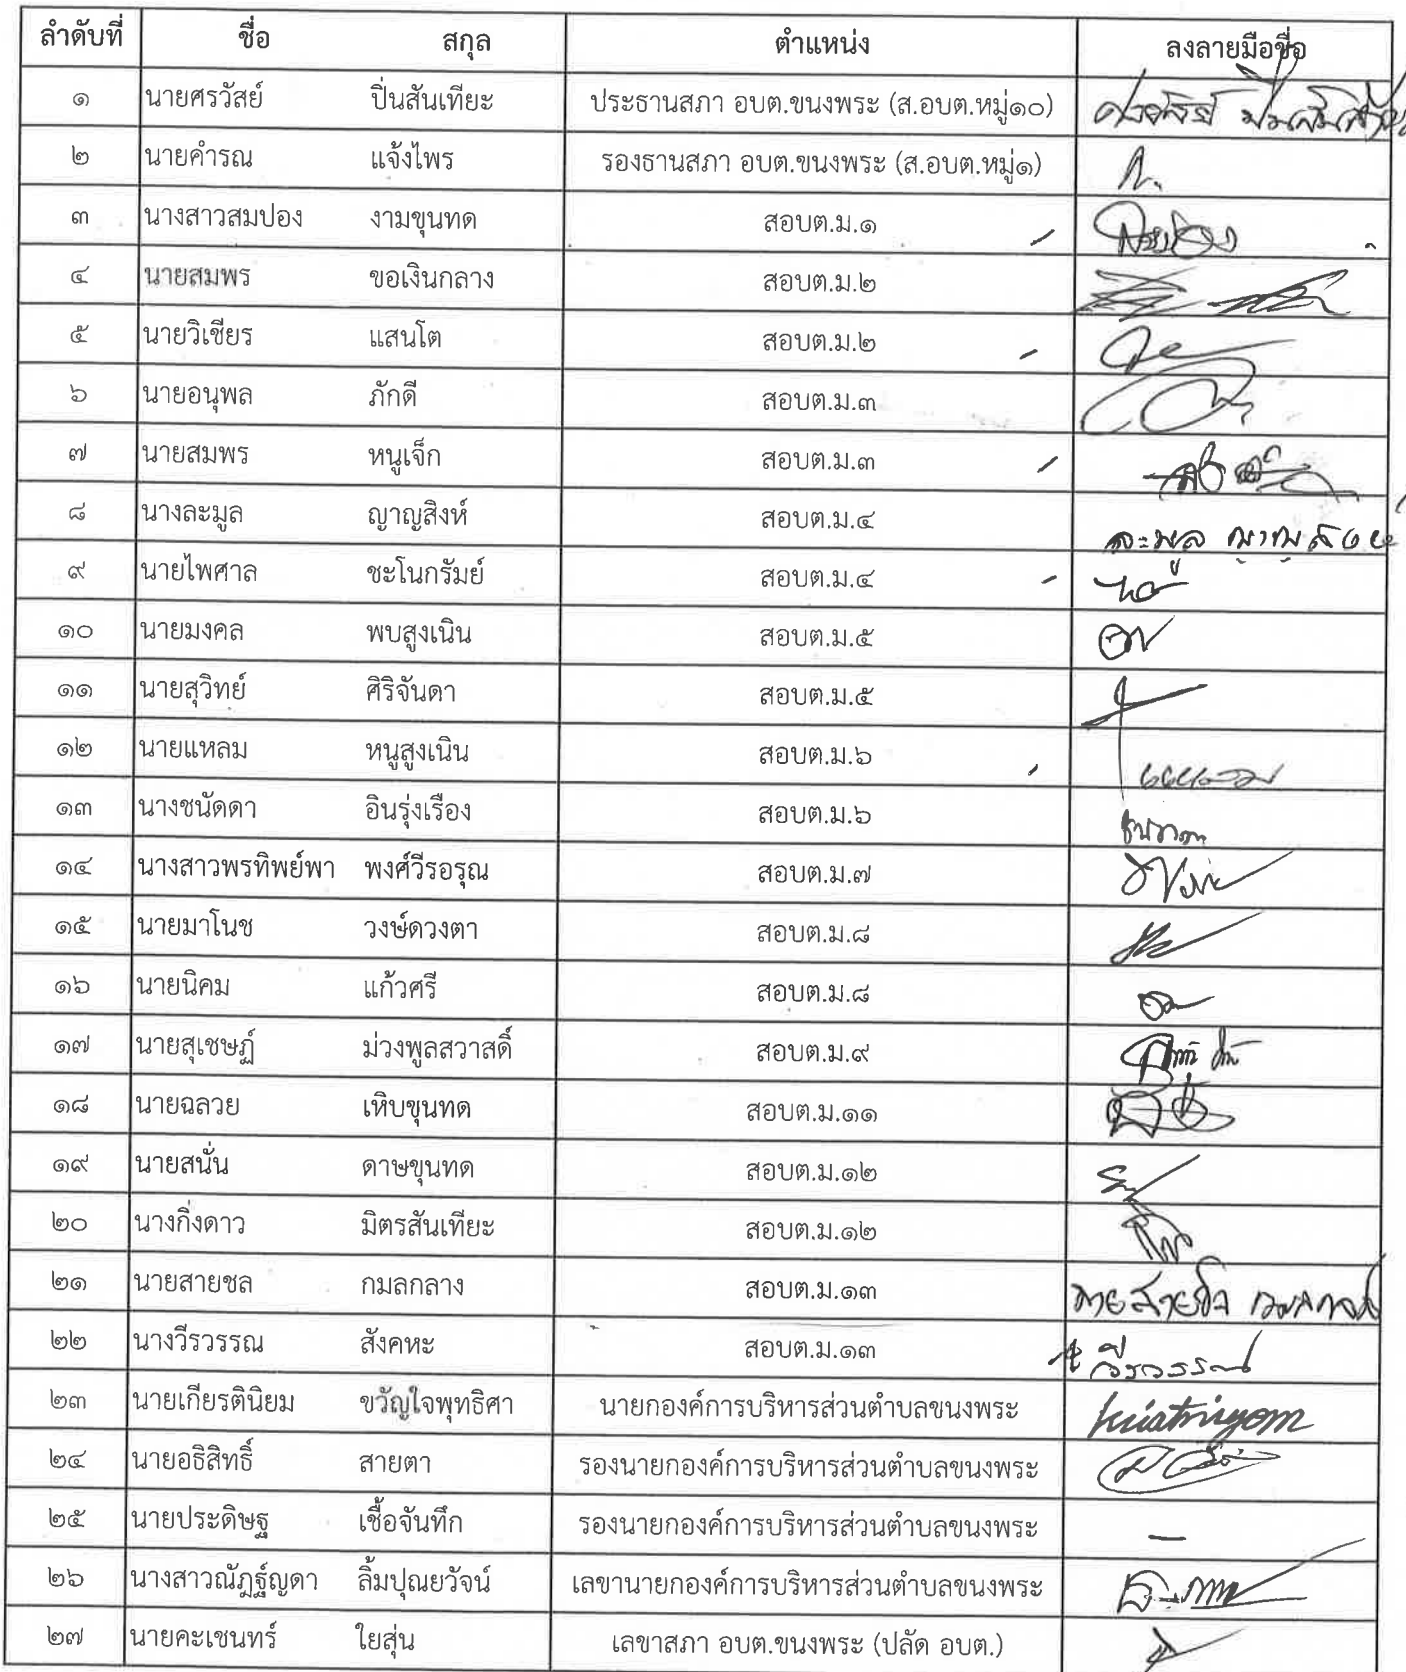 ลำดับที่ ชื่อ สกุล ตำแหน่ง ลงลายมือชื่อ
๑ นายศรวัสย์ ปิ่นสันเทียะ ประธานสภา อบต.ขนงพระ (ส.อบต.หมู่๑๐)
๒ นายคำรณ แจ้งไพร รองธานสภา อบต.ขนงพระ (ส.อบต.หมู่๑)
๓ นางสาวสมปอง งามขุนทด สอบต.ม.๑
๔ นายสมพร ขอเงินกลาง สอบต.ม.๒
๕ นายวิเชียร แสนโต สอบต.ม.๒
๖ นายอนุพล ภักดี สอบต.ม.๓
๗ นายสมพร หนูเจ็ก สอบต.ม.๓
๘ นางละมูล ญาญสิงห์ สอบต.ม.๔ ละมูล ญาญสิงห์
๙ นายไพศาล ชะโนกรัมย์ สอบต.ม.๔
๑๐ นายมงคล พบสูงเนิน สอบต.ม.๕
๑๑ นายสุวิทย์ ศิริจันดา สอบต.ม.๕
๑๒ นายแหลม หนูสูงเนิน สอบต.ม.๖
๑๓ นางชนัดดา อินรุ่งเรือง สอบต.ม.๖
๑๔ นางสาวพรทิพย์พา พงศ์วีรอรุณ สอบต.ม.๗
๑๕ นายมาโนช วงษ์ดวงตา สอบต.ม.๘
๑๖ นายนิคม แก้วศรี สอบต.ม.๘
๑๗ นายสุเชษฏ์ ม่วงพูลสวาสดิ์ สอบต.ม.๙
๑๘ นายฉลวย เหิบขุนทด สอบต.ม.๑๑
๑๙ นายสนั่น ดาษขุนทด สอบต.ม.๑๒
๒๐ นางกิ่งดาว มิตรสันเทียะ สอบต.ม.๑๒
๒๑ นายสายชล กมลกลาง สอบต.ม.๑๓ นายสายชล กมลกลาง
๒๒ นางวีรวรรณ สังคหะ สอบต.ม.๑๓ วีรวรรณ
๒๓ นายเกียรตินิยม ขวัญใจพุทธิศา นายกองค์การบริหารส่วนตำบลขนงพระ kiatniyom
๒๔ นายอธิสิทธิ์ สายตา รองนายกองค์การบริหารส่วนตำบลขนงพระ
๒๕ นายประดิษฐ เชื้อจันทึก รองนายกองค์การบริหารส่วนตำบลขนงพระ –
๒๖ นางสาวณัฎฐ์ญดา ลิ้มปุณยวัจน์ เลขานายกองค์การบริหารส่วนตำบลขนงพระ
๒๗ นายคะเชนทร์ ใยสุ่น เลขาสภา อบต.ขนงพระ (ปลัด อบต.)